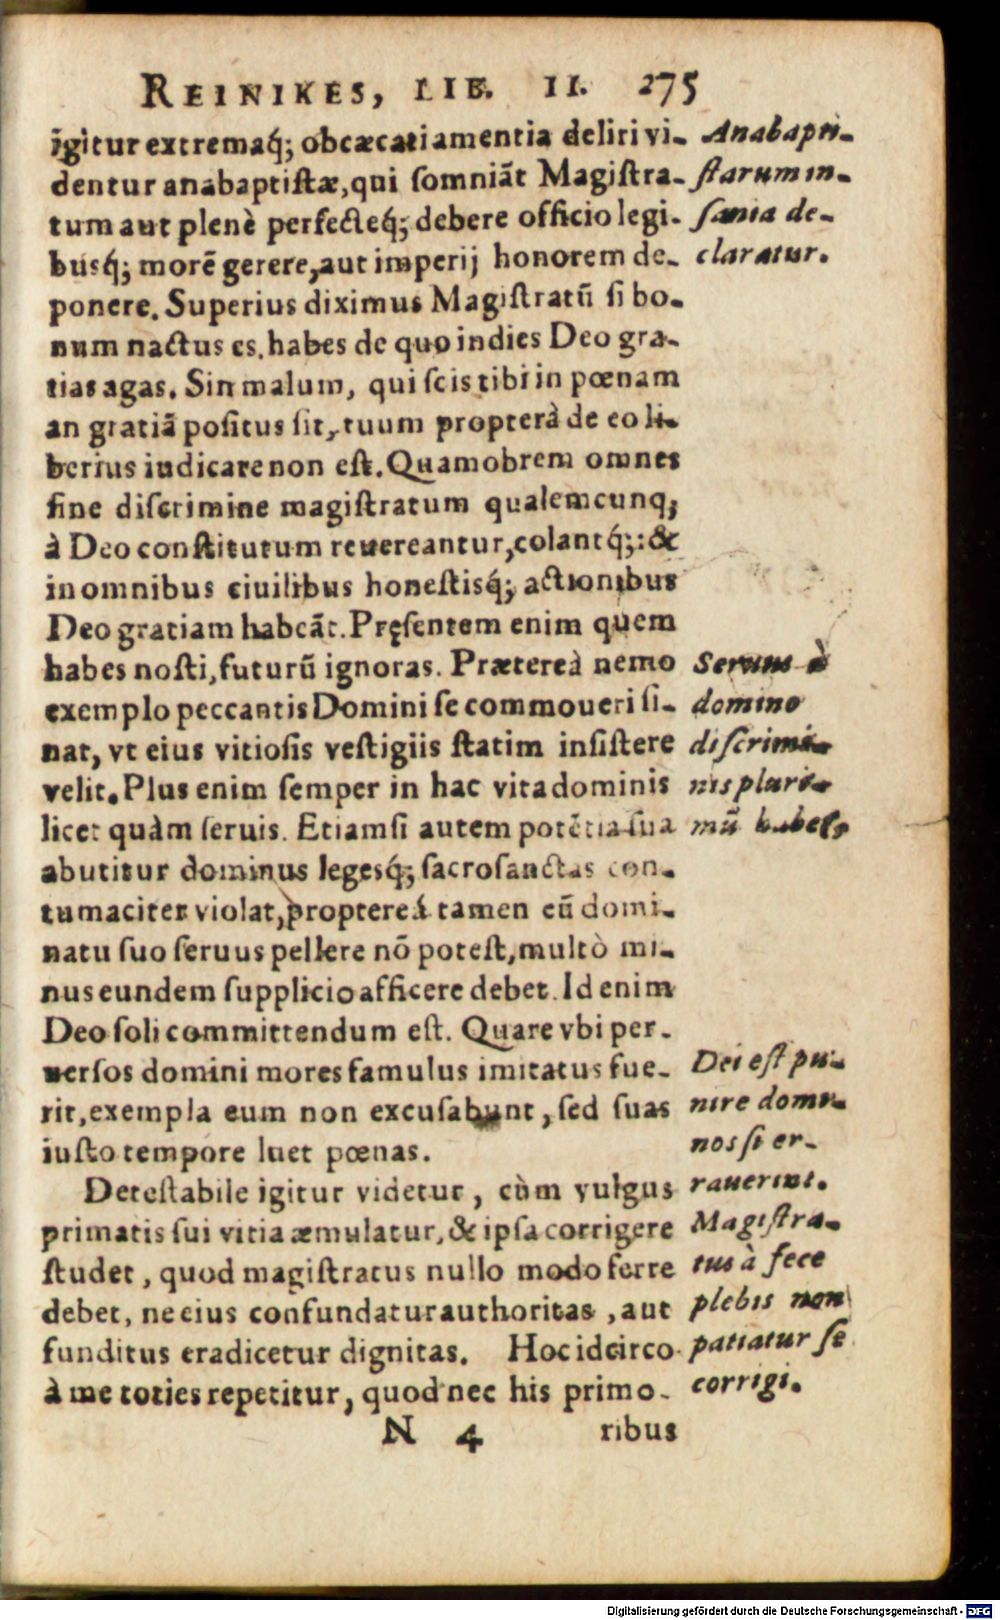 REINIKES, LIB. II. 275
igitur extremaq́; obcæcati amentia deliri vi-
dentur anabaptiſtæ, qui ſomniãt Magiſtra-
tum aut plenè perfecteq́; debere officio legi-
busq́; morẽ gerere, aut imperij honorem de-
ponere. Superius diximus Magiſtratũ ſi bo-
num nactus es. habes de quo indies Deo gra-
tias agas. Sin malum, qui ſcis tibi in pœnam
an gratiã poſitus ſit, tuum propterà de eo li-
berius iudicare non eſt. Quamobrem omnes
ſine diſcrimine magiſtratum qualemcunq;
à Deo conſtitutum reuereantur, colantq́;: &
in omnibus ciuilibus honeſtisq́; actionibus
Deo gratiam habeãt. Pręſentem enim quem
habes noſti, futurũ ignoras. Prætereà nemo
exemplo peccantis Domini ſe commoueri ſi-
nat, vt eius vitioſis veſtigiis ſtatim inſiſtere
velit. Plus enim ſemper in hac vita dominis
licet quàm ſeruis. Etiamſi autem potẽtia ſua
abutitur dominus legesq́; ſacroſanctas con-
tumaciter violat, proptereá tamen eũ domi-
natu ſuo ſeruus pellere nõ poteſt, multò mi-
nus eundem ſupplicio afficere debet. Id enim
Deo ſoli committendum eſt. Quare vbi per-
uerſos domini mores famulus imitatus fue-
rit, exempla eum non excuſabunt, ſed ſuas
iuſto tempore luet pœnas.
Deteſtabile igitur videtur, cùm vulgus
primatis ſui vitia æmulatur, & ipſa corrigere
ſtudet, quod magiſtratus nullo modo ferre
debet, ne eius confundatur authoritas, aut
funditus eradicetur dignitas. Hoc idcirco
à me toties repetitur, quod nec his primo-
N 4 ribus
Anabapti-
ſtarum in-
ſania de-
claratur.
Seruus à
domino
diſcrimi-
nis pluri-
mũ habet.
Dei eſt pu-
nire domi-
nos ſi er-
rauerint.
Magiſtra-
tus à fece
plebis non
patiatur ſe
corrigi.
Digitalisierung gefördert durch die Deutsche Forschungsgemeinschaft - DFG